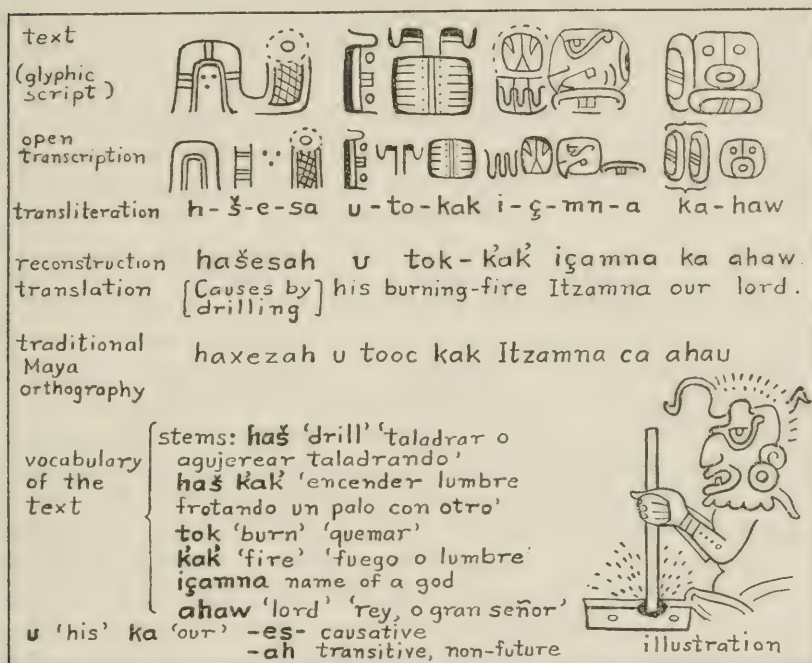 text
(glyphic
script)
open
transcription
transliteration h-š-e-sa u-to-kak i-ç-mn-a ka-haw
reconstruction hašesah u tok-k̓ak̓ içamna ka ahaw.
translation [Causes by drilling] his burning-fire Itzamna our lord.
traditional
Maya
orthography
haxezah u tooc kak Itzamna ca ahau
vocabulary
of the
text
stems: haš 'drill' 'taladrar o
agujerear taladrando'
haš k̓ak̓ 'encender lumbre
frotando un palo con otro'
tok 'burn' 'quemar'
k̓ak̓ 'fire' 'fuego o lumbre'
içamna name of a god
ahaw 'lord' 'rey, o gran señor'
u 'his' ka 'our' -es- causative
-ah transitive, non-future
illustration